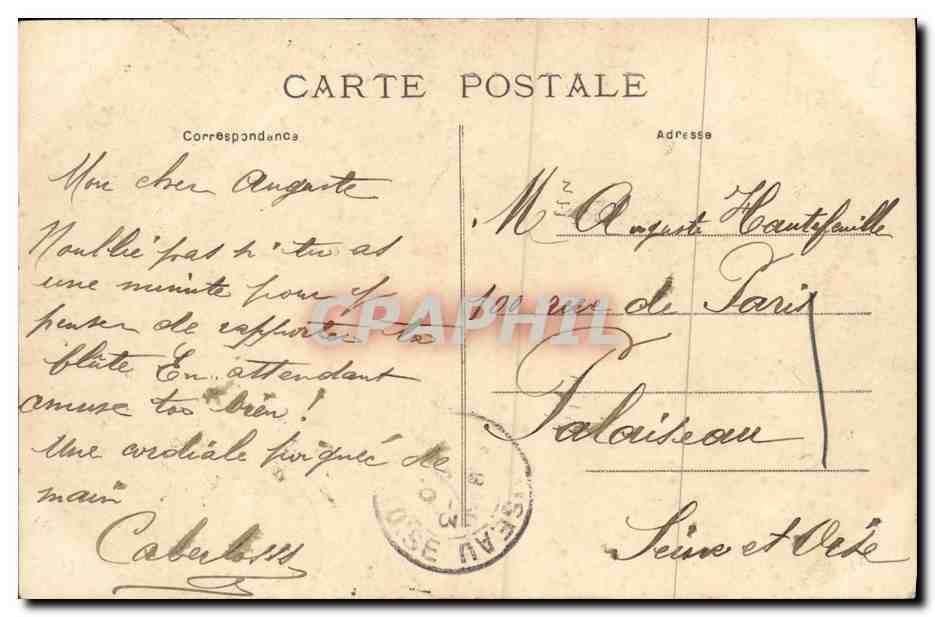 CARTE POSTALE
Correspondance
Adresse
Mon cher Auguste
N'oublie pas si tu as
une minute pour y
penser de rapporter ta
flûte En attendant
amuse toi bien!
Une cordiale poignée de
main
M. Auguste Hautefeuille
100 rue de Paris
Palaiseau
Seine et Oise
CPAPHIL